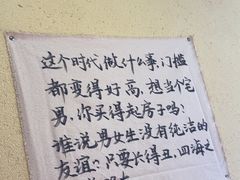 这个时代做什么事,门槛
都变得好高,想当个宅
男,你买得起房子吗?
谁说男女生没有纯洁的
友谊?只要长得丑,四海之